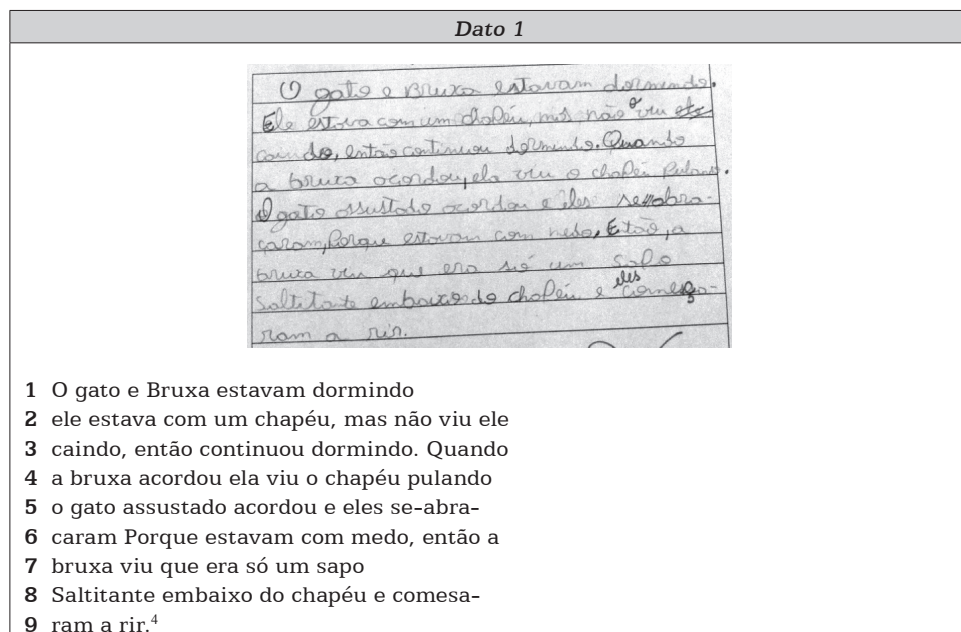 Dato 1
O gato e Bruxa estavam dormindo.
Ele estava com um chapéu, mas não o viu ele
caindo, então continuou dormindo. Quando
a bruxa acordou, ela viu o chapéu pulando.
O gato assustado acordou e eles se abra-
caram, Porque estavam com medo, Então, a
bruxa viu que era só um sapo
Saltitante embaixo do chapéu e eles começa-
ram a rir.
1 O gato e Bruxa estavam dormindo
2 ele estava com um chapéu, mas não viu ele
3 caindo, então continuou dormindo. Quando
4 a bruxa acordou ela viu o chapéu pulando
5 o gato assustado acordou e eles se-abra-
6 caram Porque estavam com medo, então a
7 bruxa viu que era só um sapo
8 Saltitante embaixo do chapéu e comesa-
9 ram a rir.4